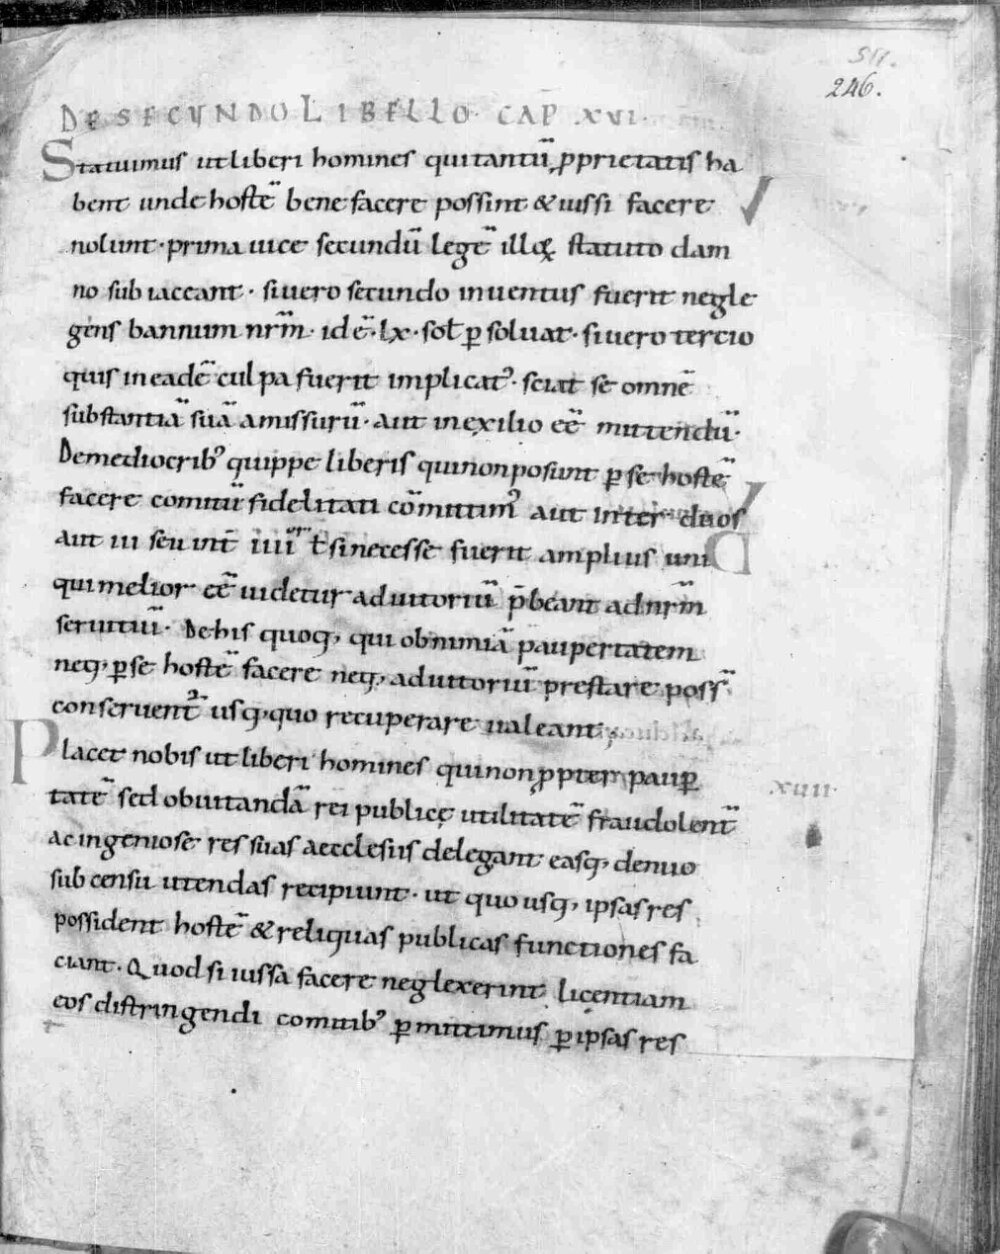 511.
246.
DE SECUNDO LIBELLO· CAP̅ .XVI.
Statuimus ut liberi homines qui tantū ꝓprietatis ha
bent unde hostē bene facere possint & iussi facere
nolunt· prima uice secundū legē illoꝝ statuto dam
no subiaceant· si uero secundo inuentus fuerit negle
gens bannum nr̄m· id ē· lx· sol̄ ꝑsoluat· si uero tertio
quis in eadē culpa fuerit implicat᾽· sciat se omnē
substantiā suā amissurū· aut in exilio eē mittendū·
De mediocrib᾽ quippe liberis qui non posunt ꝑ se hostē
facere comitū fidelitati cōmittim᾽ aut inter duos
aut iii seu int̄ iiii ł si necesse fuerit amplius uni
qui melior eē uidetur adiutoriū p̄beant ad nr̄m
seruitiū· De his quoq, qui ob nimiā paupertatem
neq, ꝑ se hostē facere neq, adiutoriū prestare poss̄
conseruent᾽ usq, quo recuperare ualeant;
Placet nobis ut liberi homines qui non ꝓpter pauꝑ
tatē sed ob uitandā rei publicę utilitatē fraudolent̄
ac ingeniose res suas aecclesiis delegant easq, denuo
sub censu utendas recipiunt· ut quo usq, ipsas res
possident hostē & reliquas publicas functiones fa
ciant· Quod si iussa facere neglexerint licentiam
eos distringendi comitib᾽ ꝑmittimus ꝑ ipsas res